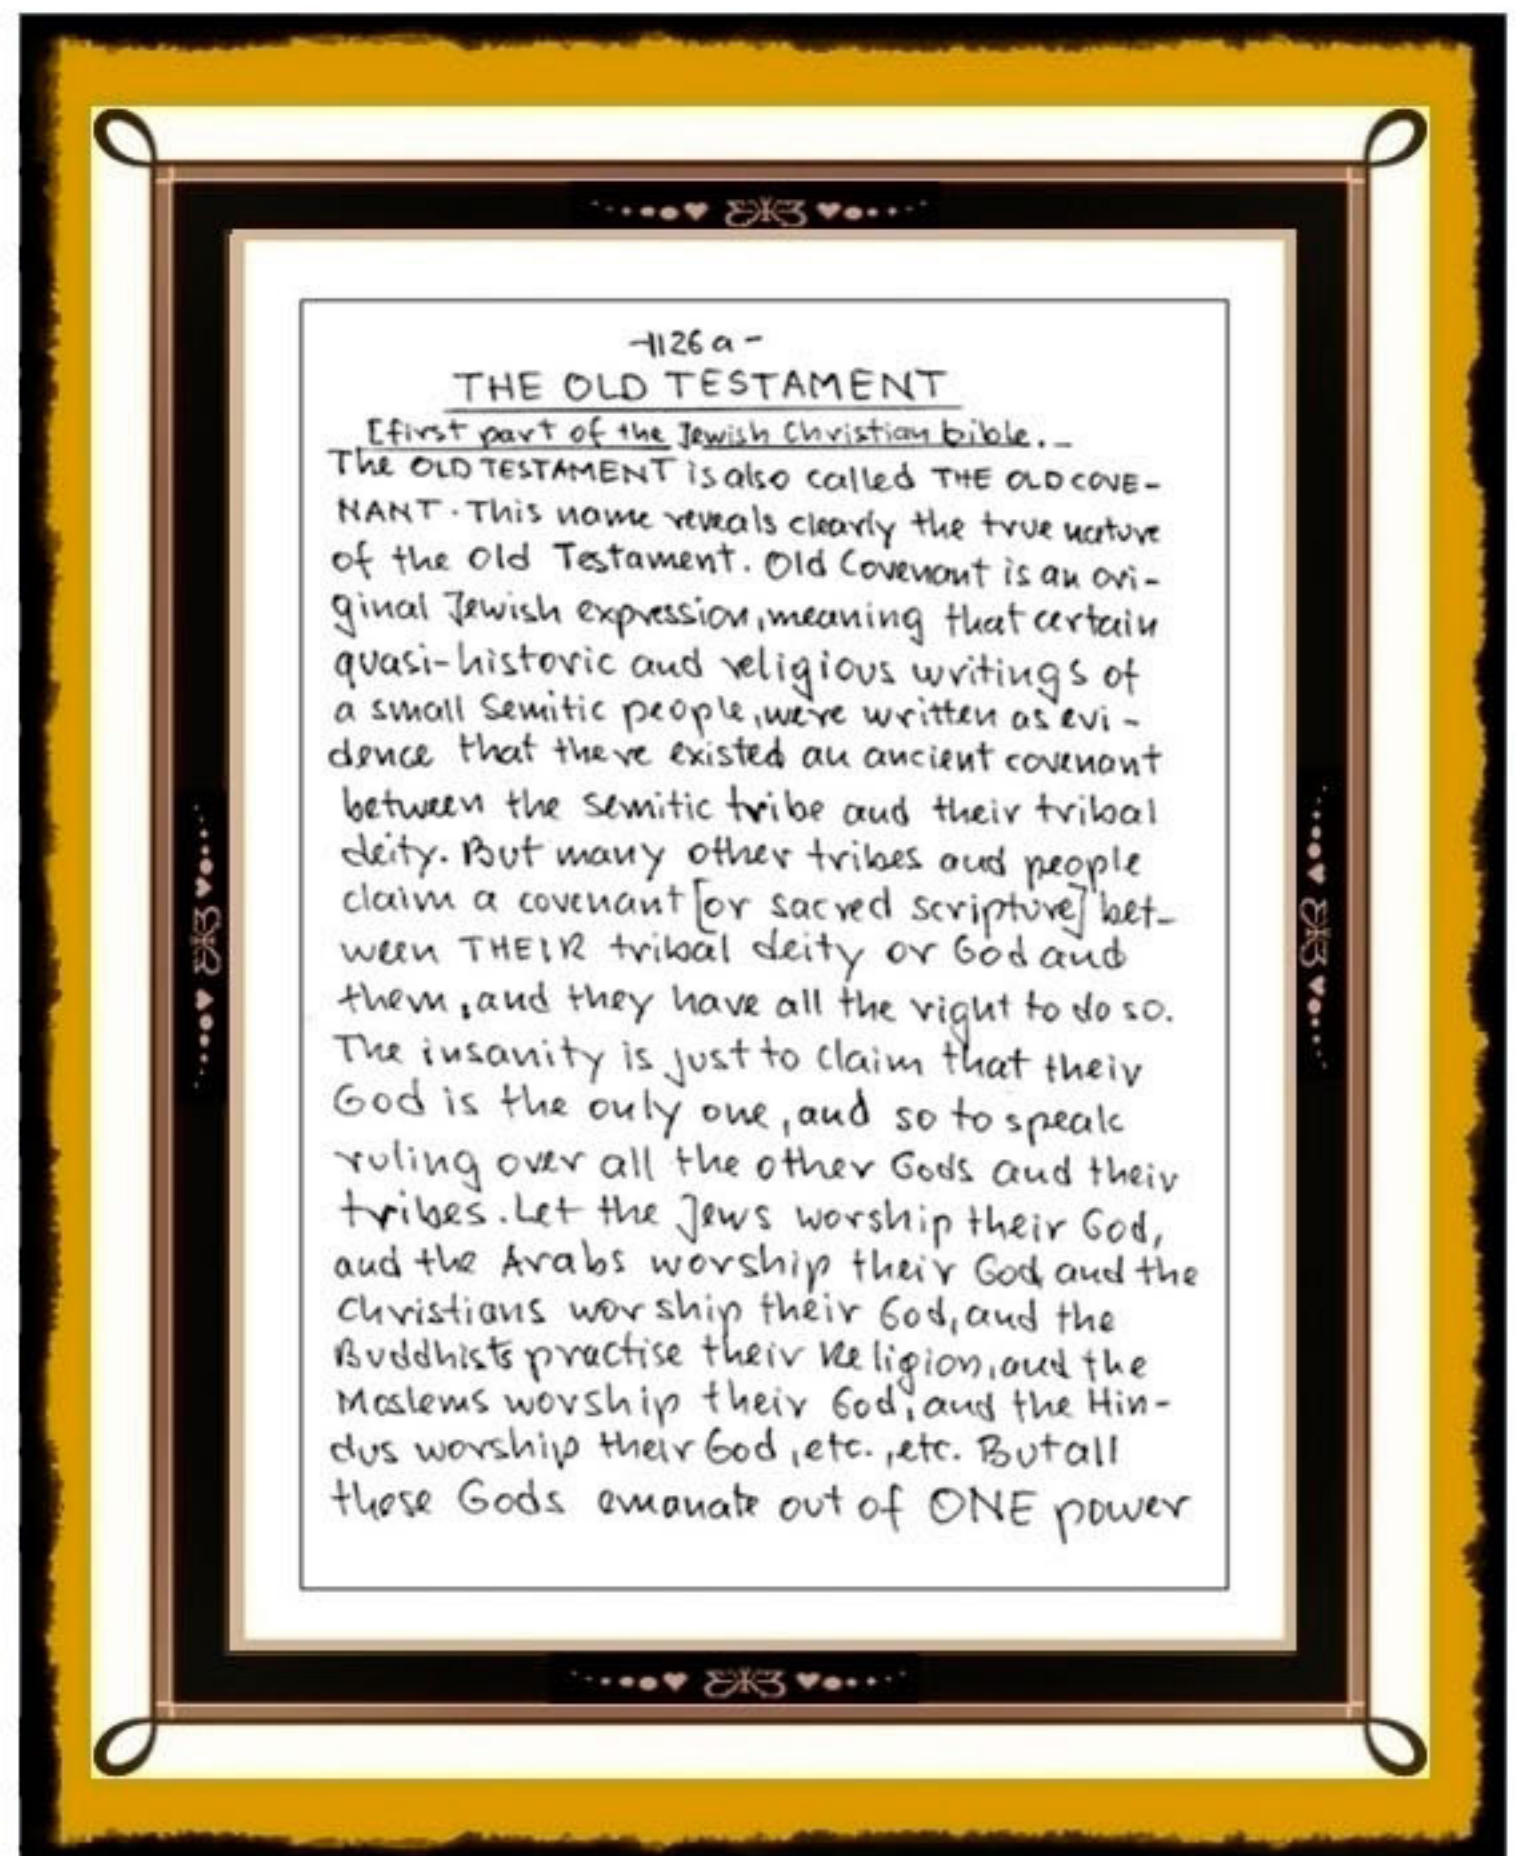 -1126a-
THE OLD TESTAMENT
[first part of the Jewish Christian bible._
The OLD TESTAMENT is also called THE OLD COVE-
NANT. This name reveals clearly the true nature
of the Old Testament. Old Covenant is an ori-
ginal Jewish expression, meaning that certain
quasi-historic and religious writings of
a small Semitic people, were written as evi-
dence that there existed an ancient covenant
between the Semitic tribe and their tribal
deity. But many other tribes and people
claim a covenant [or sacred scripture] bet-
ween THEIR tribal deity or God and
them, and they have all the right to do so.
The insanity is just to claim that their
God is the only one, and so to speak
ruling over all the other Gods and their
tribes. Let the Jews worship their God,
and the Arabs worship their God, and the
Christians worship their God, and the
Buddhists practise their Religion, and the
Moslems worship their God, and the Hin-
dus worship their God, etc., etc. But all
these Gods emanate out of ONE power